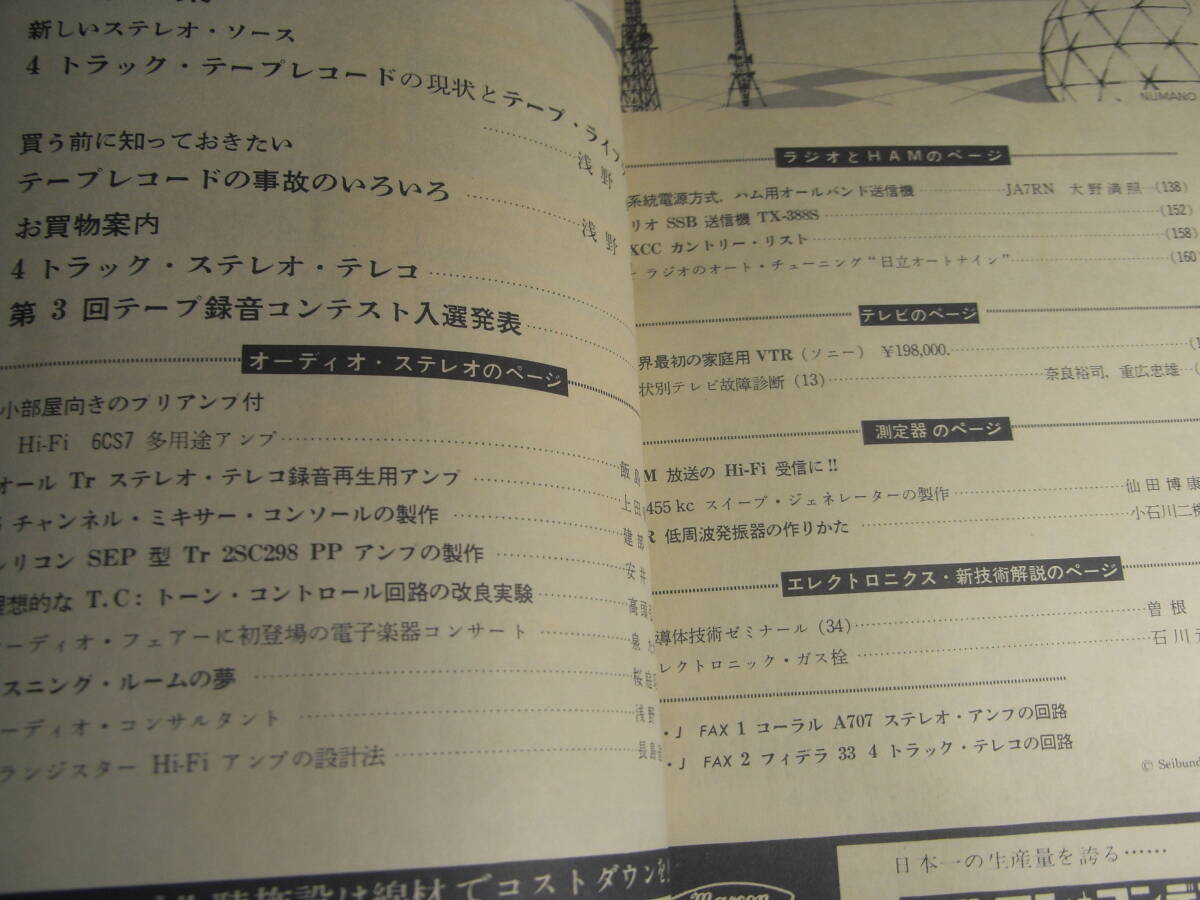 新しいステレオ・ソース
4 トラック・テープレコードの現状とテープ・ライブ
浅野
買う前に知っておきたい
テープレコードの事故のいろいろ
浅野
お買物案内
4 トラック・ステレオ・テレコ
第 3 回テープ録音コンテスト入選発表
オーディオ・ステレオのページ
小部屋向きのプリアンプ付
Hi-Fi 6CS7 多用途アンプ 飯島
オール Tr ステレオ・テレコ録音再生用アンプ 上田
チャンネル・ミキサー・コンソールの製作 建部
シリコン SEP 型 Tr 2SC298 PP アンプの製作 安井
理想的な T.C: トーン・コントロール回路の改良実験 高頭
ーディオ・フェアーに初登場の電子楽器コンサート 泉
スニング・ルームの夢 桜庭
ーディオ・コンサルタント 浅野
ランジスター Hi-Fi アンプの設計法 長島
聴施設は線材でコストダウン
NUMANO
ラジオとHAMのページ
系統電源方式, ハム用オールバンド送信機 JA7RN 大野満照 (138)
リオ SSB 送信機 TX-388S (152)
XCC カントリー・リスト (158)
ラジオのオート・チューニング“日立オートナイン” (160)
テレビのページ
界最初の家庭用 VTR (ソニー) ¥198,000.
状別テレビ故障診断 (13) 奈良裕司, 重広忠雄
測定器 のページ
M 放送の Hi-Fi 受信に!!
455 kc スイープ・ジェネレーターの製作 仙田博康
R 低周波発振器の作りかた 小石川二
エレクトロニクス・新技術解説のページ
導体技術ゼミナール (34) 曽根
レクトロニック・ガス栓 石川
・J FAX 1 コーラル A707 ステレオ・アンプの回路
・J FAX 2 フィデラ 33 4 トラック・テレコの回路
© Seibund
日本一の生産量を誇る……